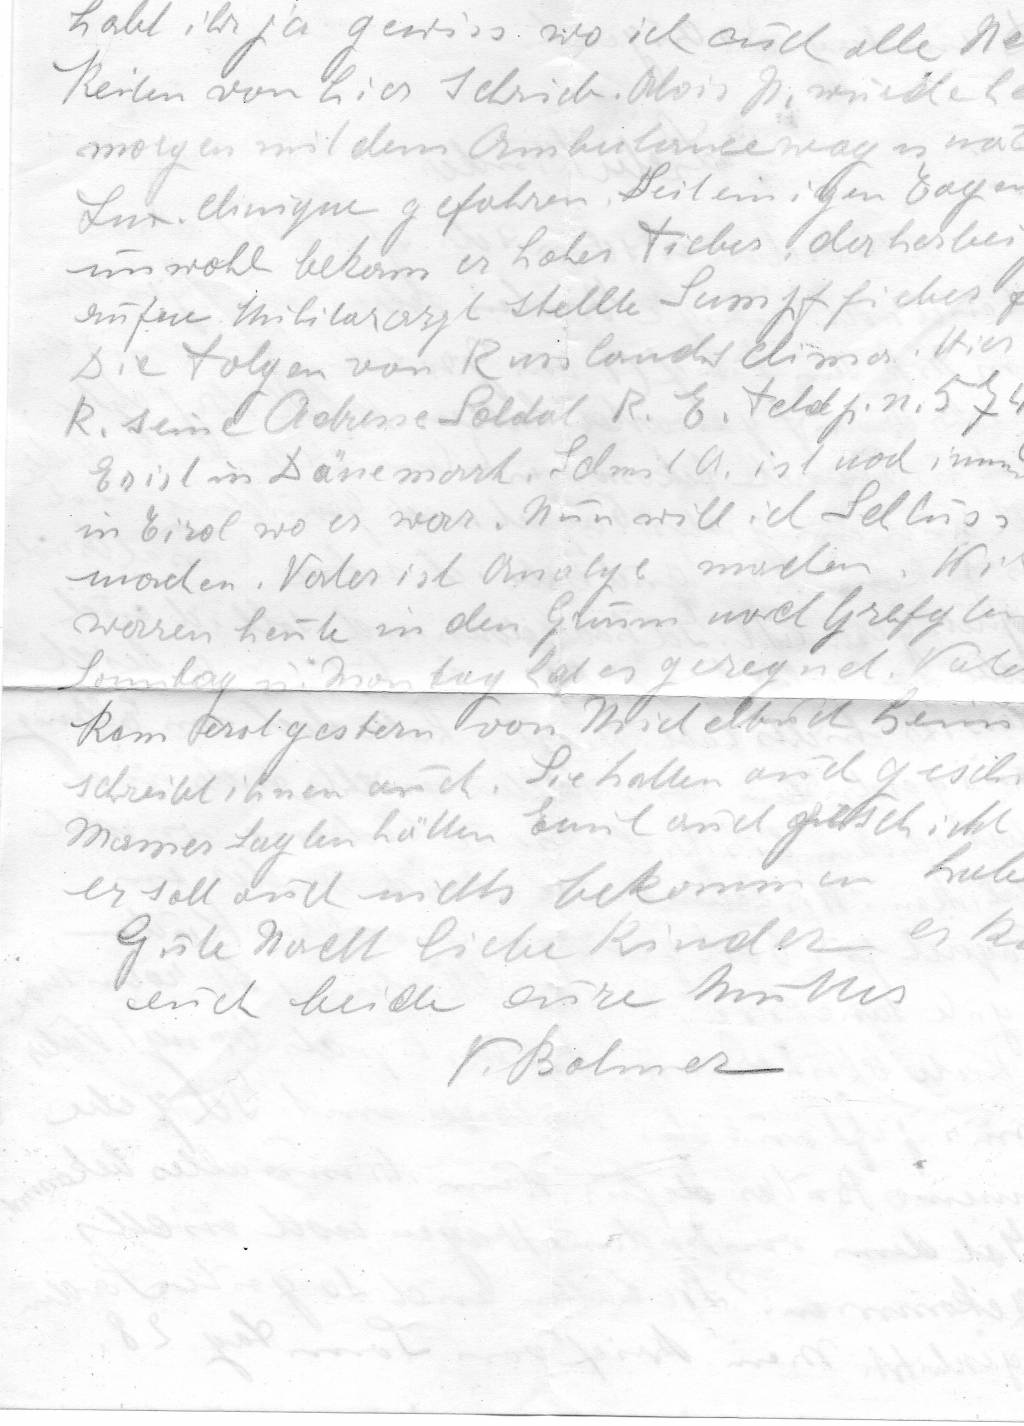 habt ihr ja gewiss wo ich auch alle Ne
keiten von hier schrieb. Alois N. wurde he
morgen mit dem Ambulancewagen nac
Lux. Clinique gefahren. Seit einigen Tagen
unwohl bekam er hohes Fieber, der herbei
rufne Militärarzt stellte Sumpffieber f
Die Folgen von Russlands Clima. Hier
R. seine Adresse Soldat R. E. Feldp. n. 574
Er ist in Dänemark. Schmit A. ist noch imm
in Tirol wo er war. Nun will ich Schluss
machen. Vater ist Analyse machen. Wir
warren heute in den Grumm nach
Sonntag u. Montag hat es geregnet. Vate
kam erst gestern von Midelbuch heim
schreibt ihnen auch. Sie hatten auch gesch
Mamer sagten hätten Emil auch geschickt
er soll auch nichts bekommen habe
Gute Nacht liebe Kinder es kü
euch beide eure Mutter
V. Bolmer